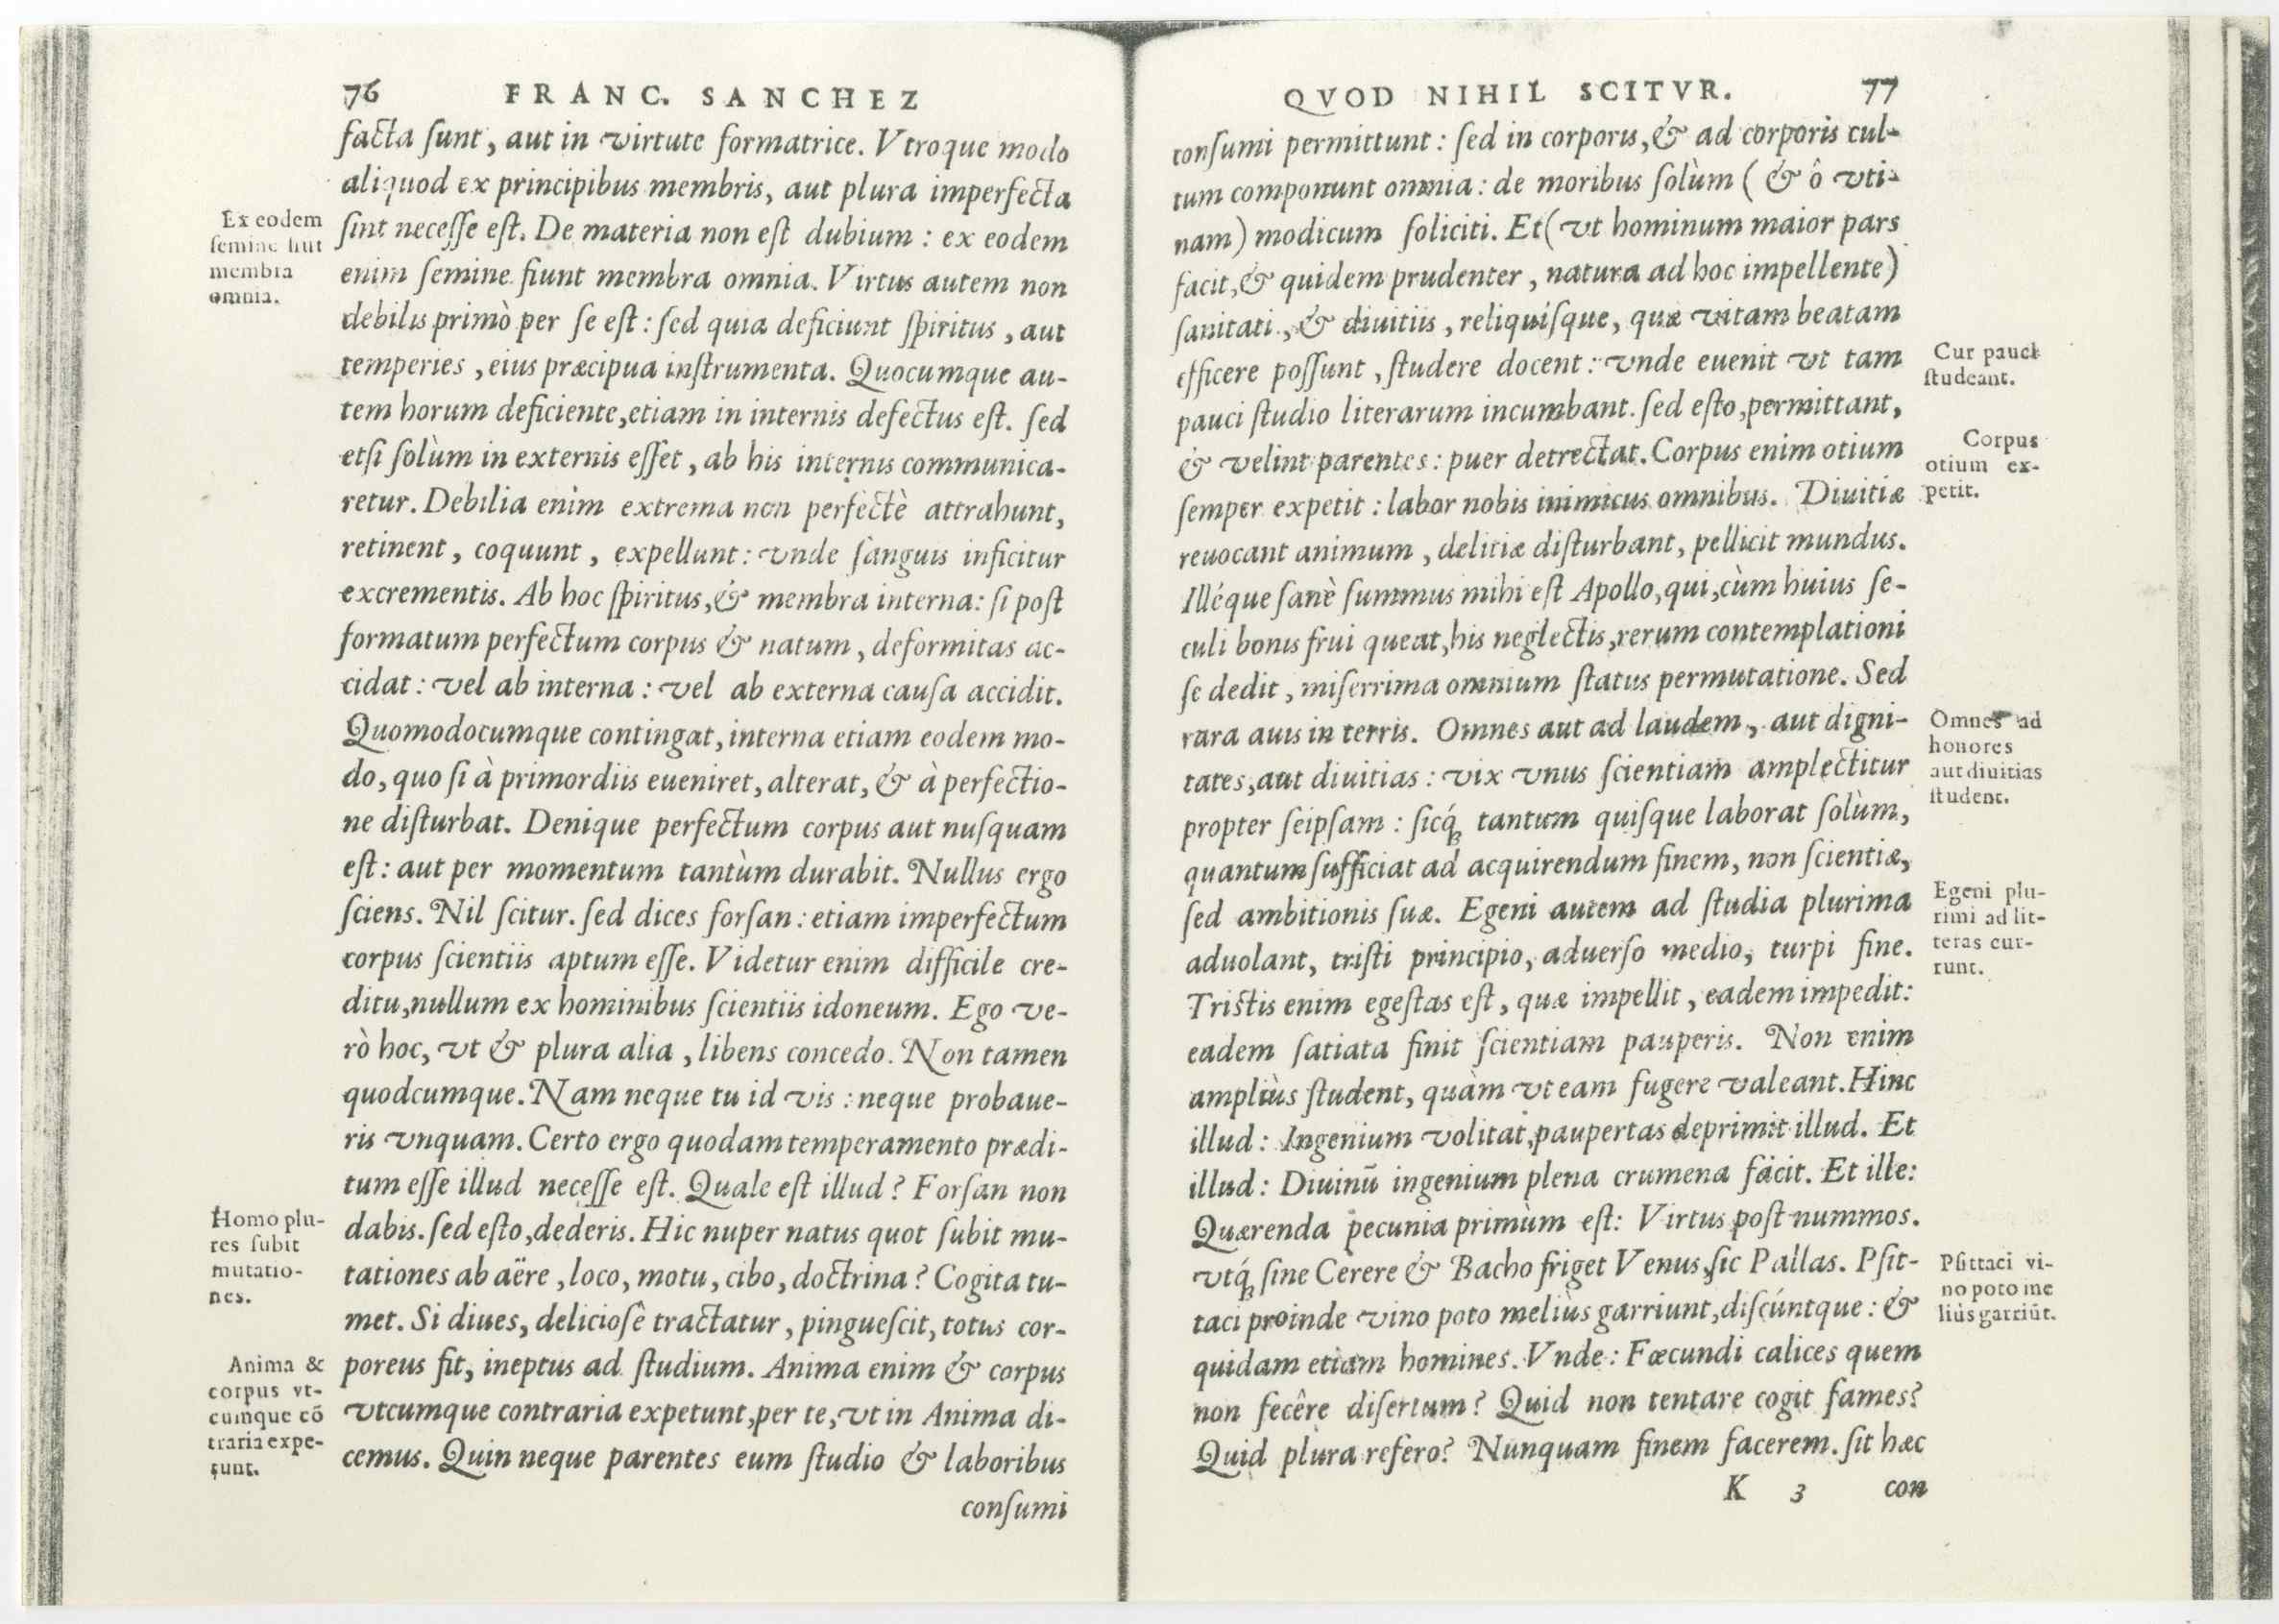 76 FRANC. SANCHEZ
facta ſunt, aut in virtute formatrice. Vtroque modo
aliquod ex principibus membris, aut plura imperfecta
ſint neceſſe eſt. De materia non eſt dubium : ex eodem
enim ſemine fiunt membra omnia. Virtus autem non
debilis primò per ſe eſt : ſed quia deficiunt ſpiritus, aut
temperies, eius præcipua inſtrumenta. Quocumque au-
tem horum deficiente, etiam in internis defectus eſt. ſed
etſi ſolùm in externis eſſet, ab his internis communica-
retur. Debilia enim extrema non perfectè attrahunt,
retinent, coquunt, expellunt : vnde ſanguis inficitur
excrementis. Ab hoc ſpiritus, & membra interna : ſi poſt
formatum perfectum corpus & natum, deformitas ac-
cidat : vel ab interna : vel ab externa cauſa accidit.
Quomodocumque contingat, interna etiam eodem mo-
do, quo ſi à primordiis eueniret, alterat, & à perfectio-
ne diſturbat. Denique perfectum corpus aut nuſquam
eſt : aut per momentum tantùm durabit. Nullus ergo
ſciens. Nil ſcitur. ſed dices forſan : etiam imperfectum
corpus ſcientiis aptum eſſe. Videtur enim difficile cre-
ditu, nullum ex hominibus ſcientiis idoneum. Ego ve-
rò hoc, vt & plura alia, libens concedo. Non tamen
quodcumque. Nam neque tu id vis : neque probaue-
ris vnquam. Certo ergo quodam temperamento prædi-
tum eſſe illud neceſſe eſt. Quale eſt illud ? Forſan non
dabis. ſed eſto, dederis. Hic nuper natus quot ſubit mu-
tationes ab aëre, loco, motu, cibo, doctrina ? Cogita tu-
met. Si diues, delicioſê tractatur, pingueſcit, totus cor-
poreus fit, ineptus ad ſtudium. Anima enim & corpus
vtcumque contraria expetunt, per te, vt in Anima di-
cemus. Quin neque parentes eum ſtudio & laboribus
conſumi
Ex eodem
ſemine fiut
membra
omnia.
Homo plu-
res ſubit
mutatio-
nes.
Anima &
corpus vt-
cumque cō
traria expe-
tunt.
QVOD NIHIL SCITVR. 77
conſumi permittunt : ſed in corporis, & ad corporis cul-
tum componunt omnia : de moribus ſolùm ( & ô vti-
nam ) modicum ſoliciti. Et ( vt hominum maior pars
facit, & quidem prudenter, natura ad hoc impellente )
ſanitati, & diuitiis, reliquiſque, quæ vitam beatam
efficere poſſunt, ſtudere docent : vnde euenit vt tam
pauci ſtudio literarum incumbant. ſed eſto, permittant,
& velint parentes : puer detrectat. Corpus enim otium
ſemper expetit : labor nobis inimicus omnibus. Diuitiæ
reuocant animum, delitiæ diſturbant, pellicit mundus.
Illéque ſanè ſummus mihi eſt Apollo, qui, cùm huius ſe-
culi bonis frui queat, his neglectis, rerum contemplationi
ſe dedit, miſerrima omnium ſtatus permutatione. Sed
rara auis in terris. Omnes aut ad laudem, aut digni-
tates, aut diuitias : vix vnus ſcientiam amplectitur
propter ſeipſam : ſicq́; tantum quiſque laborat ſolùm,
quantum ſufficiat ad acquirendum finem, non ſcientiæ,
ſed ambitionis ſuæ. Egeni autem ad ſtudia plurima
aduolant, triſti principio, aduerſo medio, turpi fine.
Triſtis enim egeſtas eſt, quæ impellit, eadem impedit :
eadem ſatiata finit ſcientiam pauperis. Non enim
ampliùs ſtudent, quàm vt eam fugere valeant. Hinc
illud : Ingenium volitat, paupertas deprimit illud. Et
illud : Diuinū ingenium plena crumena facit. Et ille :
Quærenda pecunia primùm eſt : Virtus poſt nummos.
vtq́; ſine Cerere & Bacho friget Venus, ſic Pallas. Pſit-
taci proinde vino poto meliùs garriunt, diſcúntque : &
quidam etiam homines. Vnde : Fœcundi calices quem
non fecêre diſertum ? Quid non tentare cogit fames ?
Quid plura refero ? Nunquam finem facerem. ſit hæc
K 3 con
Cur pauci
ſtudeant.
Corpus
otium ex-
petit.
Omnes ad
honores
aut diuitias
ſtudent.
Egeni plu-
rimi ad lit-
teras cur-
runt.
Pſittaci vi-
no poto me
liùs garriūt.